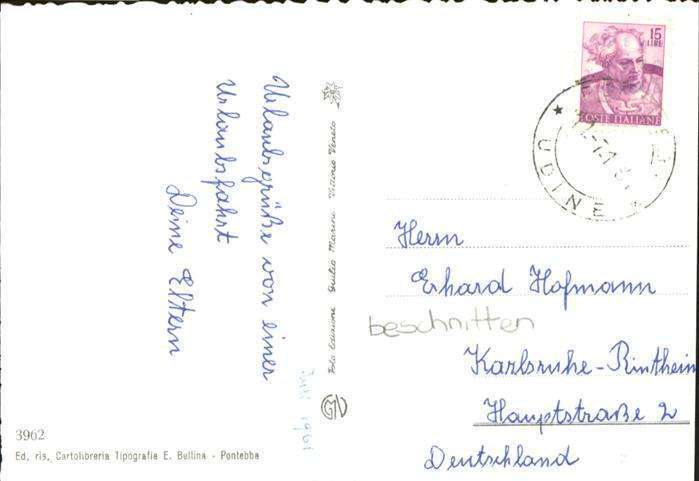 Urlaubsgrüße von einer
Urlaubsfahrt
Deine Eltern
3962
Ed. ris. Cartolibreria Tipografia E. Bellina - Pontebba
Foto Edizione Giulio Marino Vittorio Veneto
Juli 1961
15
LIRE
POSTE ITALIANE
UDINE
Herrn
Erhard Hofmann
beschnitten
Karlsruhe-Rintheim
Hauptstraße 2
Deutschland